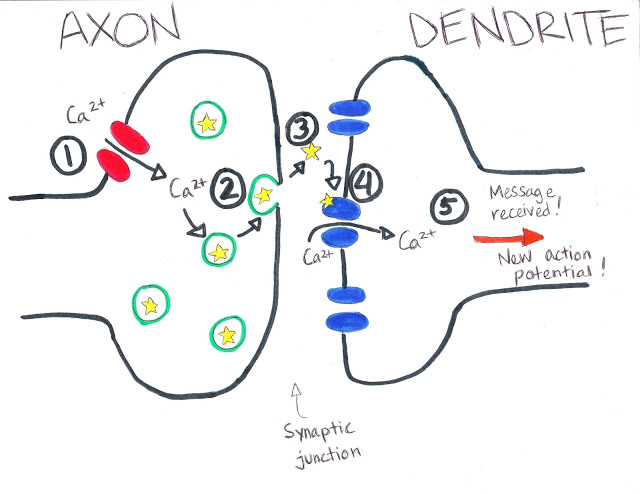 AXON
DENDRITE
Ca2+
1
Ca2+
2
3
4
Ca2+
Ca2+
5
Message
received!
New action
potential!
Synaptic
junction